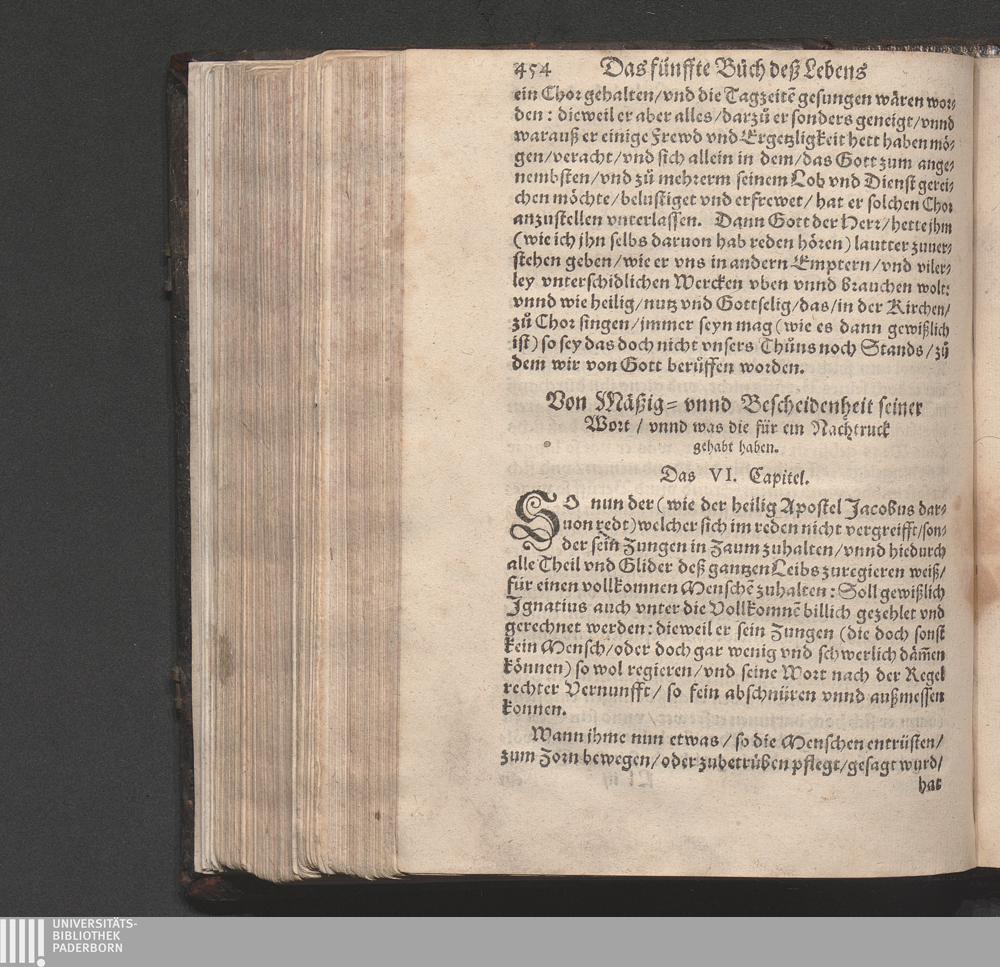 454 Das fünffte Bůch deß Lebens
ein Chor gehalten/vnd die Tagzeitẽ gesungen wären wor-
den: dieweil er aber alles/darzů er sonders geneigt/vnnd
warauß er einige Frewd vnd Ergetzligkeit hett haben mö-
gen/veracht/vnd sich allein in dem/das Gott zum ange-
nembsten/vnd zů mehrerm seinem Lob vnd Dienst gerei-
chen möchte/belustiget vnd erfrewet/hat er solchen Chor
anzustellen vnterlassen. Dann Gott der Herr/hette jhm
(wie ich jhn selbs daruon hab reden hören) lautter zuuer-
stehen geben/wie er vns in andern Emptern/vnd viler-
ley vnterschidlichen Wercken vben vnnd brauchen wolt:
vnnd wie heilig/nutz vnd Gottselig/das/in der Kirchen/
zů Chor singen/jmmer seyn mag (wie es dann gewißlich
ist) so sey das doch nicht vnsers Thůns noch Stands/zů
dem wir von Gott berůffen worden.
Von Mäßig= vnnd Bescheidenheit seiner
Wort/vnnd was die für ein Nachtruck
gehabt haben.
Das VI. Capitel.
SO nun der (wie der heilig Apostel Jacobus dar-
uon redt) welcher sich im reden nicht vergreifft/son-
der sein Zungen in Zaum zuhalten/vnnd hiedurch
alle Theil vnd Glider deß gantzen Leibs zuregieren weiß/
für einen vollkomnen Menschẽ zuhalten: Soll gewißlich
Ignatius auch vnter die Vollkomnẽ billich gezehlet vnd
gerechnet werden: dieweil er sein Zungen (die doch sonst
kein Mensch/oder doch gar wenig vnd schwerlich dãm̃en
können) so wol regieren/vnd seine Wort nach der Regel
rechter Vernunfft/so fein abschnüren vnnd außmessen
konnen.
Wann ihme nun etwas/so die Menschen entrüsten/
zum Zorn bewegen/oder zubetrüben pflegt/gesagt wurd/
hat
UNIVERSITÄTS-
BIBLIOTHEK
PADERBORN